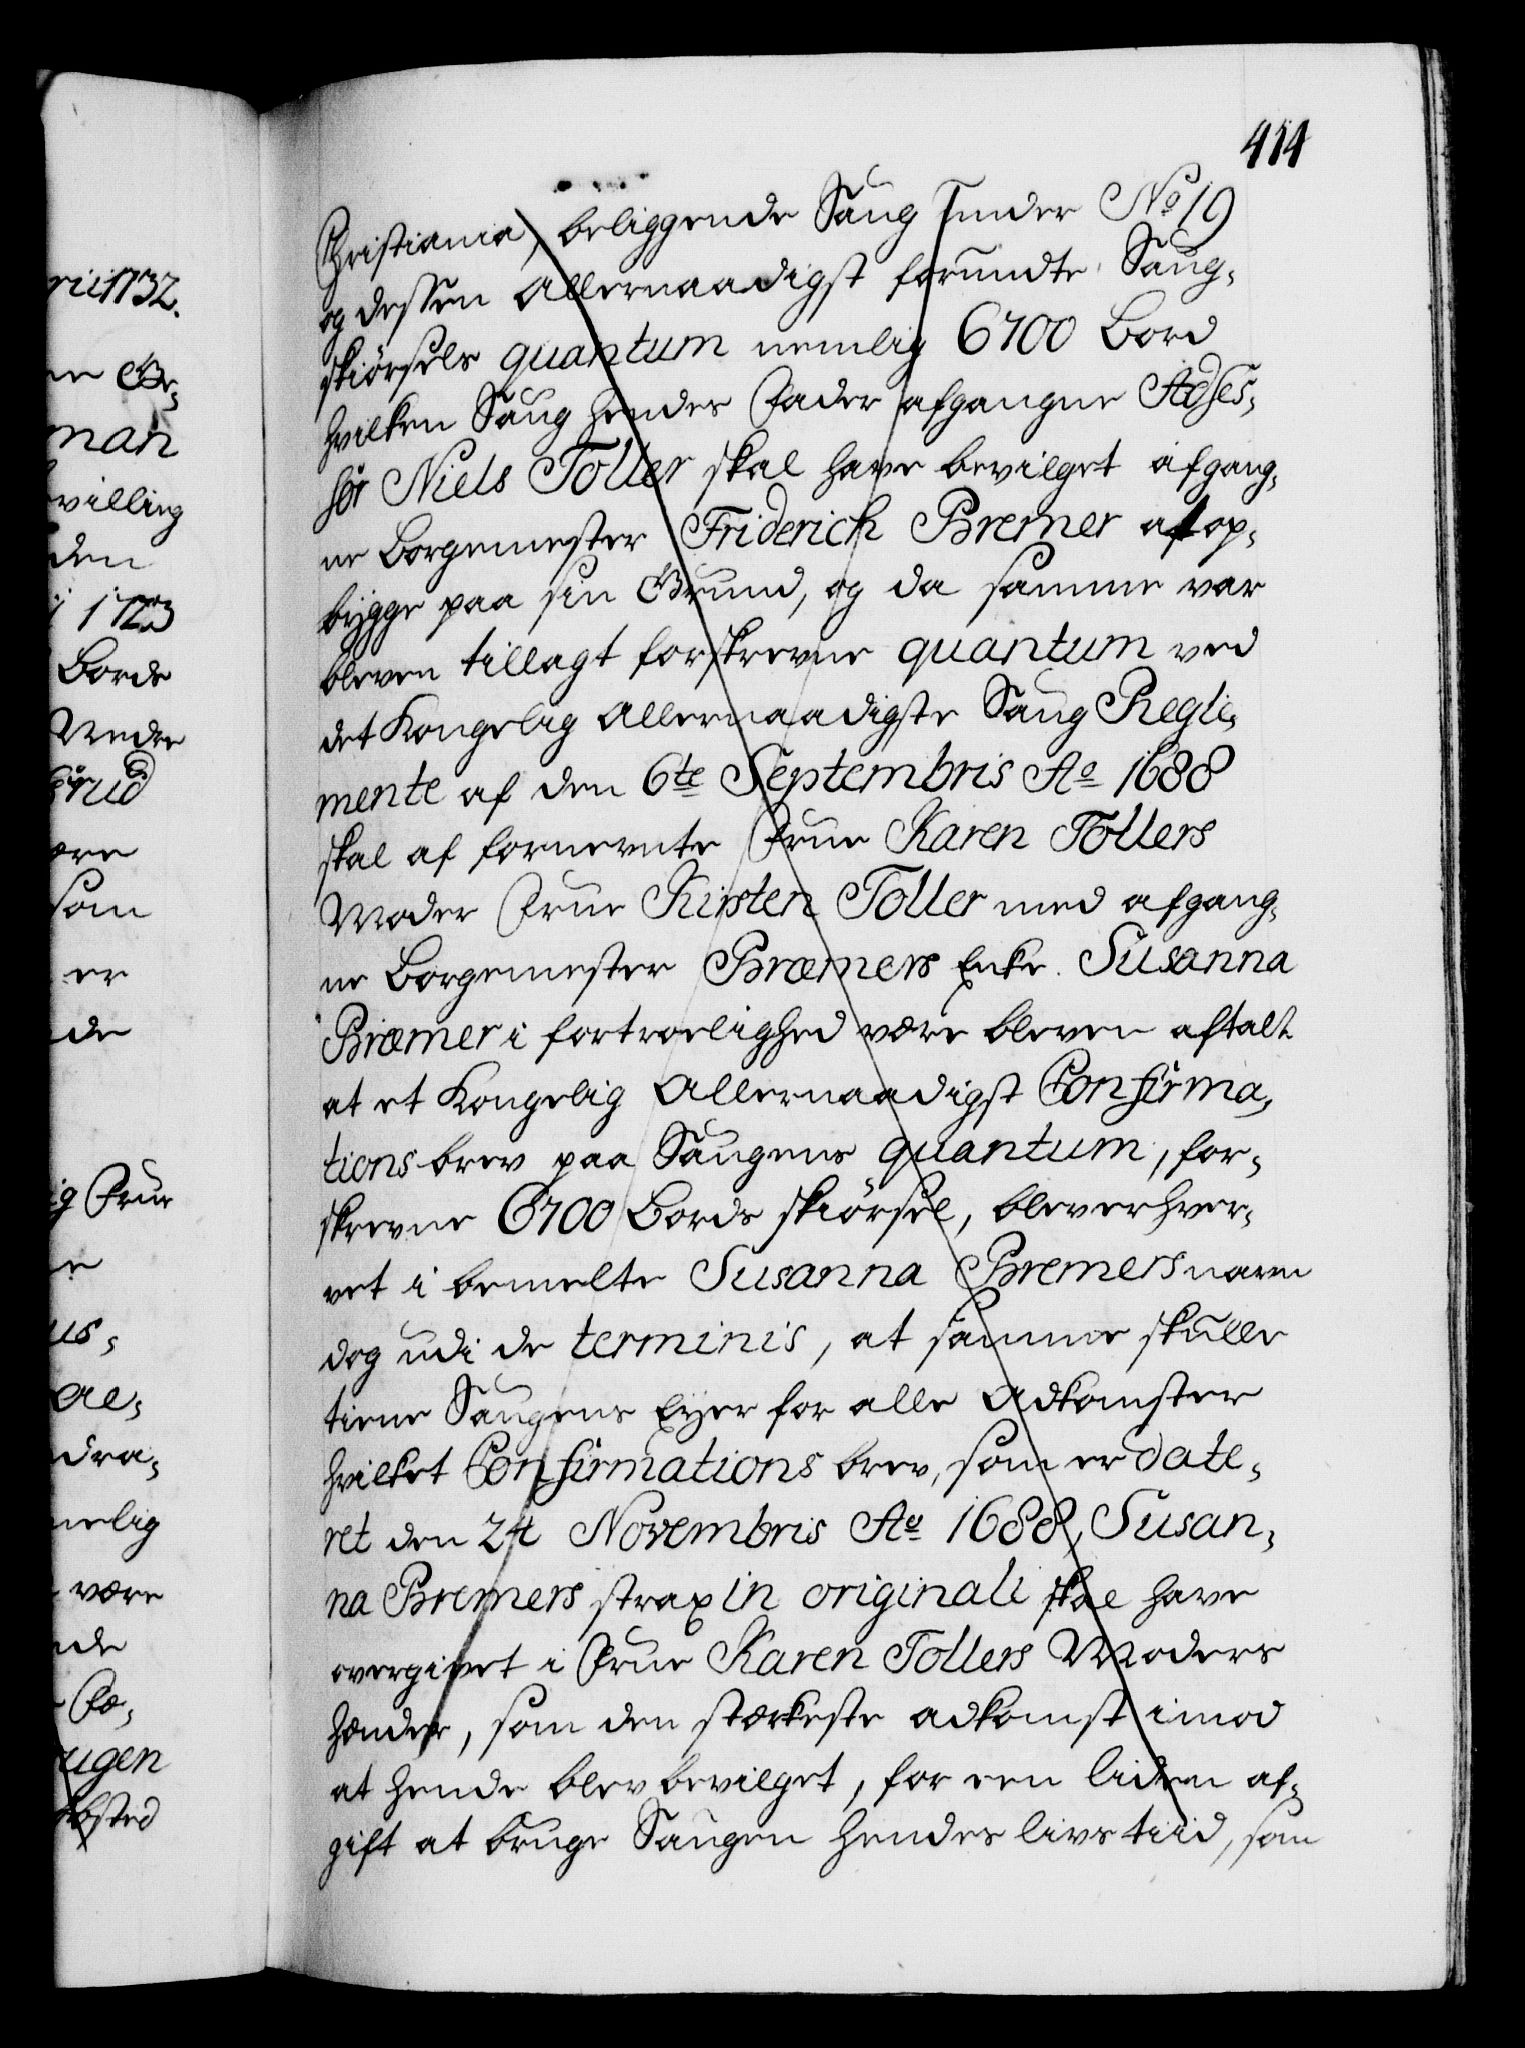 414
Christiania, beliggende Saug under No 19
og dessen Allernaadigst forundte Saug-
skiørsels quantum nemlig 6700 Bord
hvilken Saug hendes Fader afgangne Adses-
sor Niels Toller skal have bevilget afgang-
ne Borgemester Friderich Bremer at op-
bygge paa sin Grund, og da samme var
bleven tillagt forskrevne quantum ved
det Kongelig Allernaadigste Saug Regle-
mente af den 6te Septembris Ao 1688
skal af fornevnte Frue Karen Tollers
Moder Frue Kirsten Toller med afgang-
ne Borgemester Bræmers Enke Susanna
Bræmer i fortroelighed være bleven aftalt
at et Kongelig Allernaadigst Confirma-
tions brev paa Saugens quantum, for-
skrevne 6700 Bords skiørsel, blev erhver-
vet i bemelte Susanna Bremers navn
dog udi de terminis, at samme skulle
tiene Saugens Eyer for alle Adkomster
hvilket Confirmations brev, som er date-
ret den 24 Novembris Ao 1688, Susan-
na Bremers strax in originali skal have
overgivet i Frue Karen Tollers Moders
hænder, som den stærkeste adkomst imod
at hende blev bevilget, for een liden af-
gift at bruge Saugen hendes livs tiid, som
rii 1732.
man
villing
den
1723
Borde
Nedre
rud
ære
som
er
de
ig Frue
us-
ae-
dra-
melig
være
ugen
sted